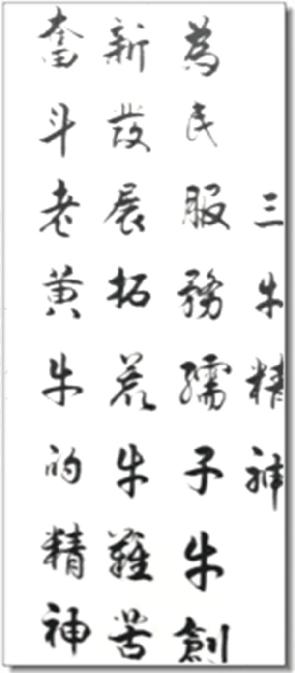 三牛精神
為民服務孺子牛創
新發展拓荒牛艱苦
奮斗老黄牛的精神